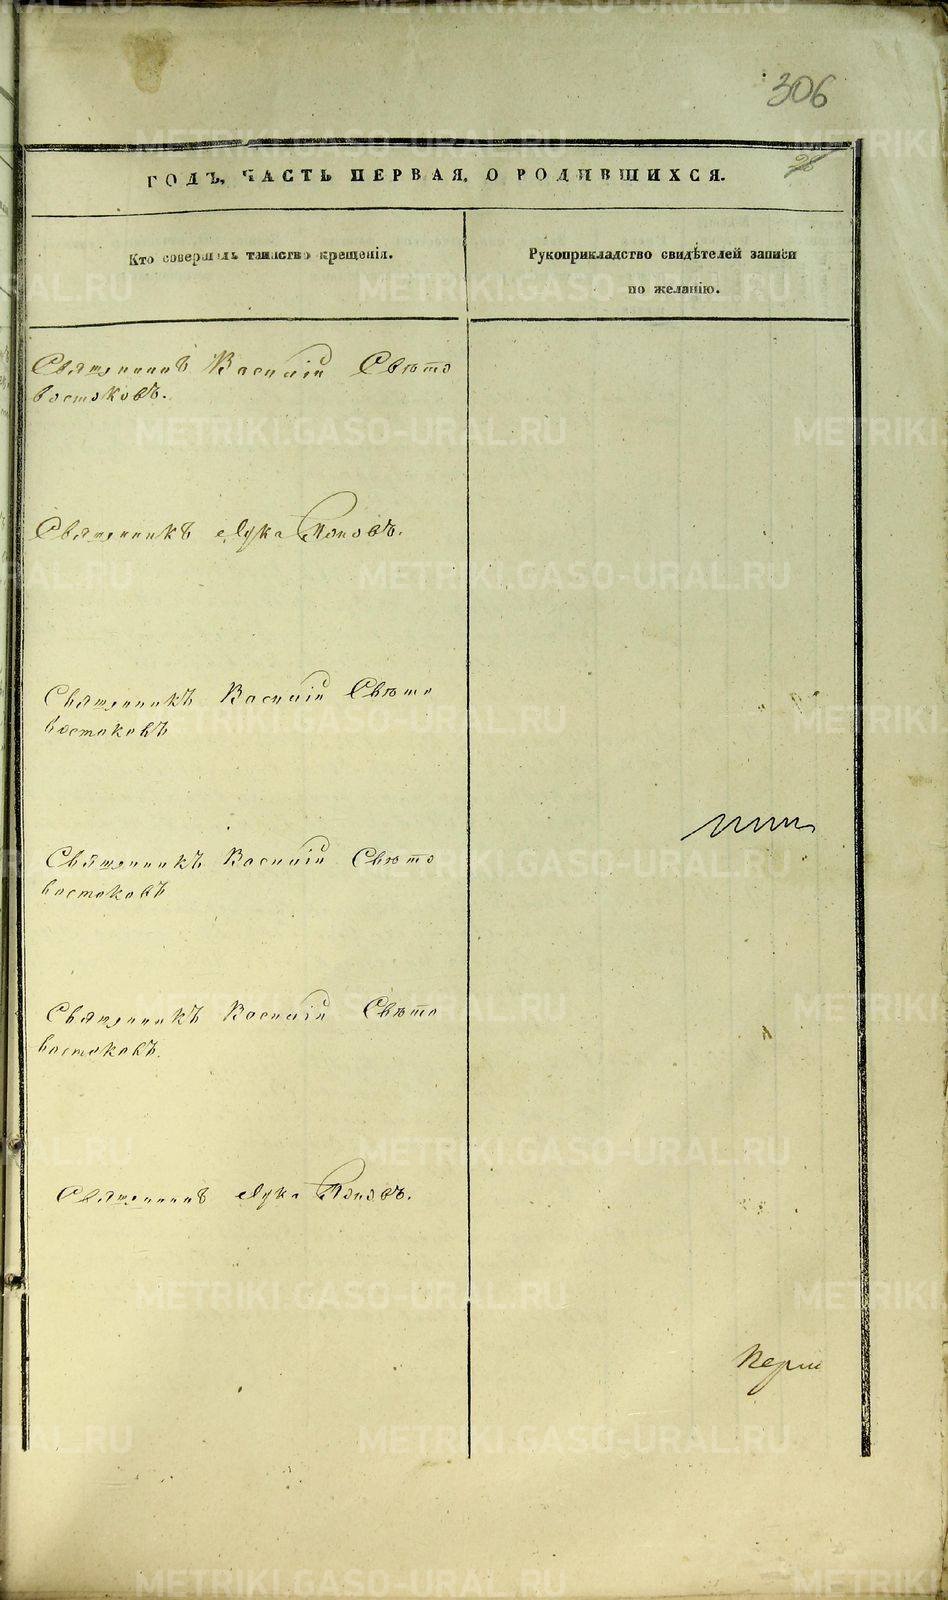 306
28
ГОДЪ, ЧАСТЬ ПЕРВАЯ, О РОДИВШИХСЯ.
Кто совершалъ таинство крещенія.
Рукоприкладство свидѣтелей записи
по желанію.
Священникъ Василій Свѣто
востоковъ.
Священникъ Лука Поповъ.
Священникъ Василій Свѣто
востоковъ
Священникъ Василій Свѣто
востоковъ
Священникъ Василій Свѣто
востоковъ.
Священникъ Лука Поповъ.
METRIKI.GASO-URAL.RU